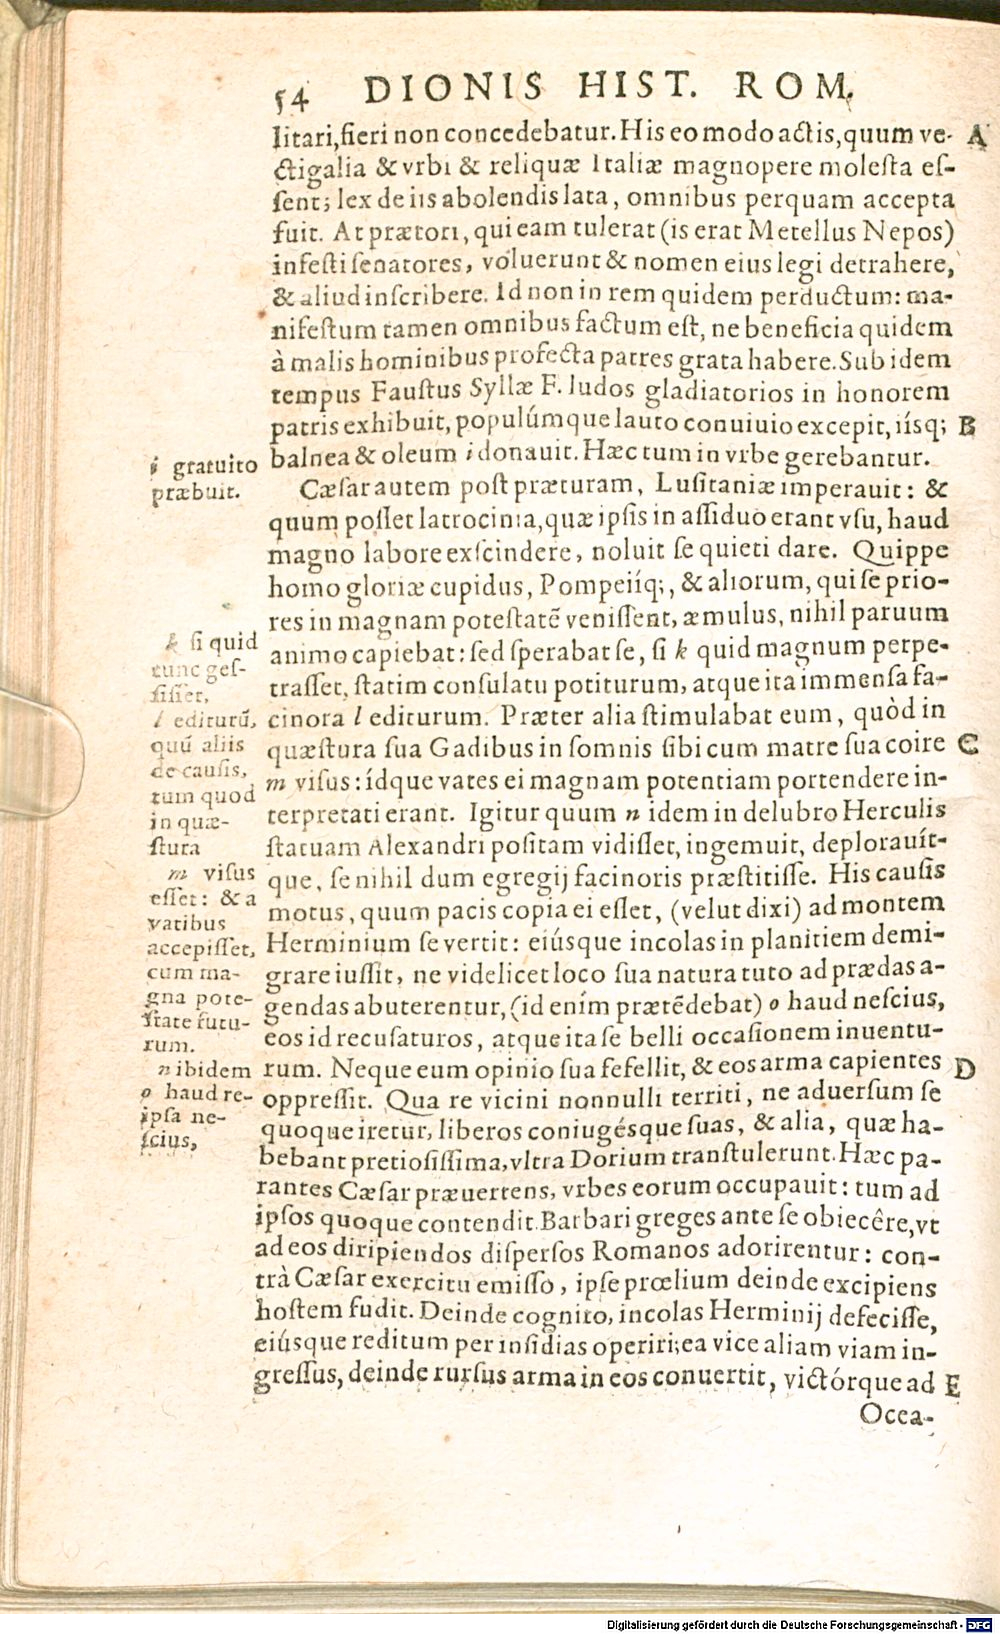 54 DIONIS HIST. ROM.
litari, fieri non concedebatur. His eo modo actis, quum ve- A
ctigalia & vrbi & reliquæ Italiæ magnopere molesta es-
sent; lex de iis abolendis lata, omnibus perquam accepta
fuit. At prætori, qui eam tulerat (is erat Metellus Nepos)
infesti senatores, voluerunt & nomen eius legi detrahere,
& aliud inscribere. Id non in rem quidem perductum: ma-
nifestum tamen omnibus factum est, ne beneficia quidem
à malis hominibus profecta patres grata habere. Sub idem
tempus Faustus Syllæ F. ludos gladiatorios in honorem
patris exhibuit, populúmque lauto conuiuio excepit, iísq; B
balnea & oleum i donauit. Hæc tum in vrbe gerebantur.
i gratuito
præbuit.
Cæsar autem post præturam, Lusitaniæ imperauit: &
quum posset latrocinia, quæ ipsis in assiduo erant vsu, haud
magno labore exscindere, noluit se quieti dare. Quippe
homo gloriæ cupidus, Pompeiíq;, & aliorum, qui se prio-
res in magnam potestatē venissent, æmulus, nihil paruum
animo capiebat: sed sperabat se, si k quid magnum perpe-
trasset, statim consulatu potiturum, atque ita immensa fa-
cinora l editurum. Præter alia stimulabat eum, quòd in
quæstura sua Gadibus in somnis sibi cum matre sua coire C
m visus: ídque vates ei magnam potentiam portendere in-
terpretati erant. Igitur quum n idem in delubro Herculis
statuam Alexandri positam vidisset, ingemuit, deplorauít-
que, se nihil dum egregij facinoris præstitisse. His causis
motus, quum pacis copia ei esset, (velut dixi) ad montem
Herminium se vertit: eiúsque incolas in planitiem demi-
grare iussit, ne videlicet loco sua natura tuto ad prædas a-
gendas abuterentur, (id enim prætēdebat) o haud nescius,
eos id recusaturos, atque ita se belli occasionem inuentu-
rum. Neque eum opinio sua fefellit, & eos arma capientes D
oppressit. Qua re vicini nonnulli territi, ne aduersum se
quoque iretur, liberos coniugésque suas, & alia, quæ ha-
bebant pretiosissima, vltra Dorium transtulerunt. Hæc pa-
rantes Cæsar præuertens, vrbes eorum occupauit: tum ad
ipsos quoque contendit. Barbari greges ante se obiecêre, vt
ad eos diripiendos dispersos Romanos adorirentur: con-
trà Cæsar exercitu emisso, ipse prœlium deinde excipiens
hostem fudit. Deinde cognito, incolas Herminij defecisse,
eiúsque reditum per insidias operiri; ea vice aliam viam in-
gressus, deinde rursus arma in eos conuertit, victórque ad E
Ocea-
k si quid
tunc ges-
sisset,
l editurū,
quū aliis
de causis,
tum quod
in quæ-
stura
m visus
esset: & a
vatibus
accepisset,
cum ma-
gna pote-
state futu-
rum.
n ibidem
o haud re-
ipsa ne-
scius,
Digitalisierung gefördert durch die Deutsche Forschungsgemeinschaft - DFG